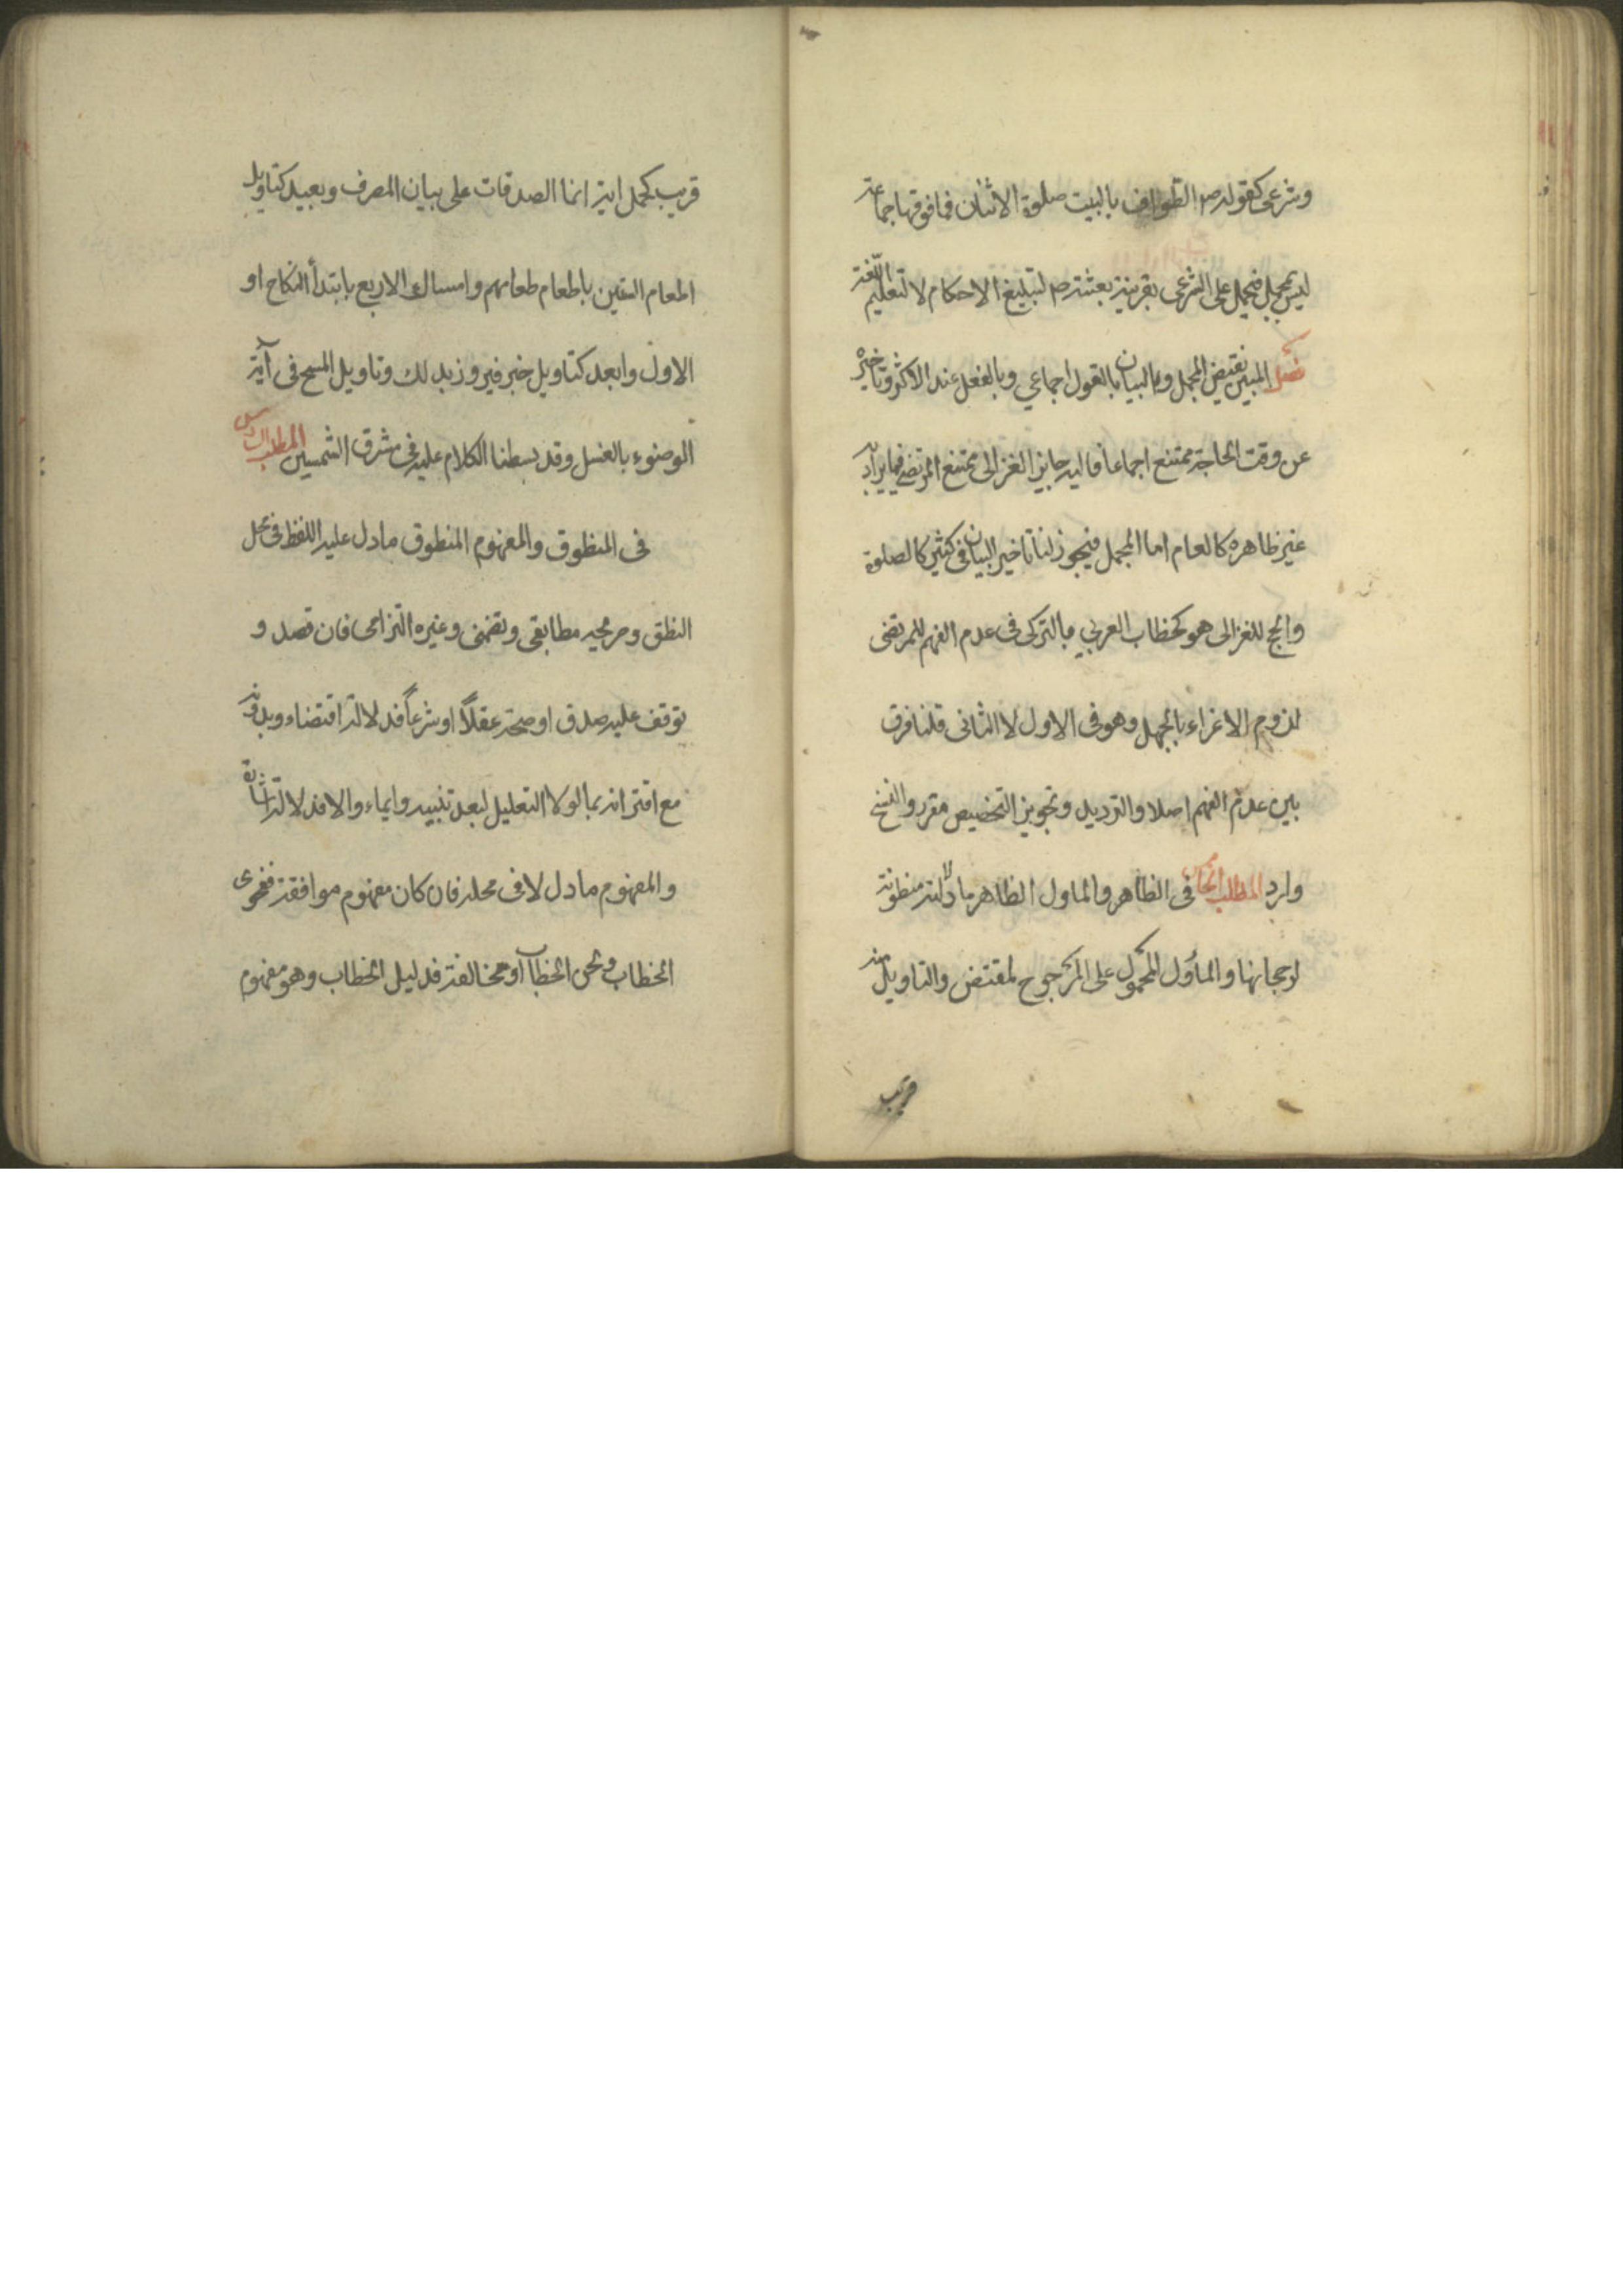 وشرعي كقوله ص الطواف بالبيت صلوة الاثنان فما فوقها جماعة
ليس بمجمل فيحمل على الشرعي بقرينة بعثته ص لتبليغ الاحكام لا لتعليم اللغة
فصل المبين نقيض المجمل والبيان بالقول اجماعي وبالفعل عند الاكثر وتاخيره
عن وقت الحاجة ممتنع اجماعا فاليه جايز الغزالي ممتنع المرتضى فيما يراد به
غير ظاهره كالعام اما المجمل فيجوز لنا تاخير البيان في كثير كالصلوة
والحج للغزالي هو كخطاب العربي بالتركي في عدم الفهم للمرتضى
لزوم الاغراء بالجهل وهو في الاول لا الثاني قلنا فرق
بين عدم الفهم اصلا والترديد وتجويز التخصيص مقرر والنسخ
وارد المطلب الخامس في الظاهر والماول الظاهر ما دلالته مظنونة
لرجحانها والمأول المحمول على المرجوح لمقتض والتاويل منه
قريب
قريب كحمل اية انما الصدقات على بيان المصرف وبعيد كتاويل
اطعام الستين باطعام طعامهم وامساك الاربع بابتدأ النكاح او
الاول وابعد كتاويل خبر فيروز بذلك وتاويل المسح في آية
الوضوء بالغسل وقد بسطنا الكلام عليه في مشرق الشمسين المطلب السادس
في المنطوق والمفهوم المنطوق ما دل عليه اللفظ في محل
النطق وصريحه مطابقي وتضمني وغيره التزامي فان قصد و
توقف عليه صدق او صحة عقلاً او شرعاً فدلالة اقتضاء وبدونه
مع اقترانه بما لولا التعليل لبعد تنبيه وايماء والا فدلالة اشارة
والمفهوم ما دل لا في محله فان كان مفهوم موافقة ففحوى
الخطاب ولحن الخطاب او مخالفة فدليل الخطاب وهو مفهوم